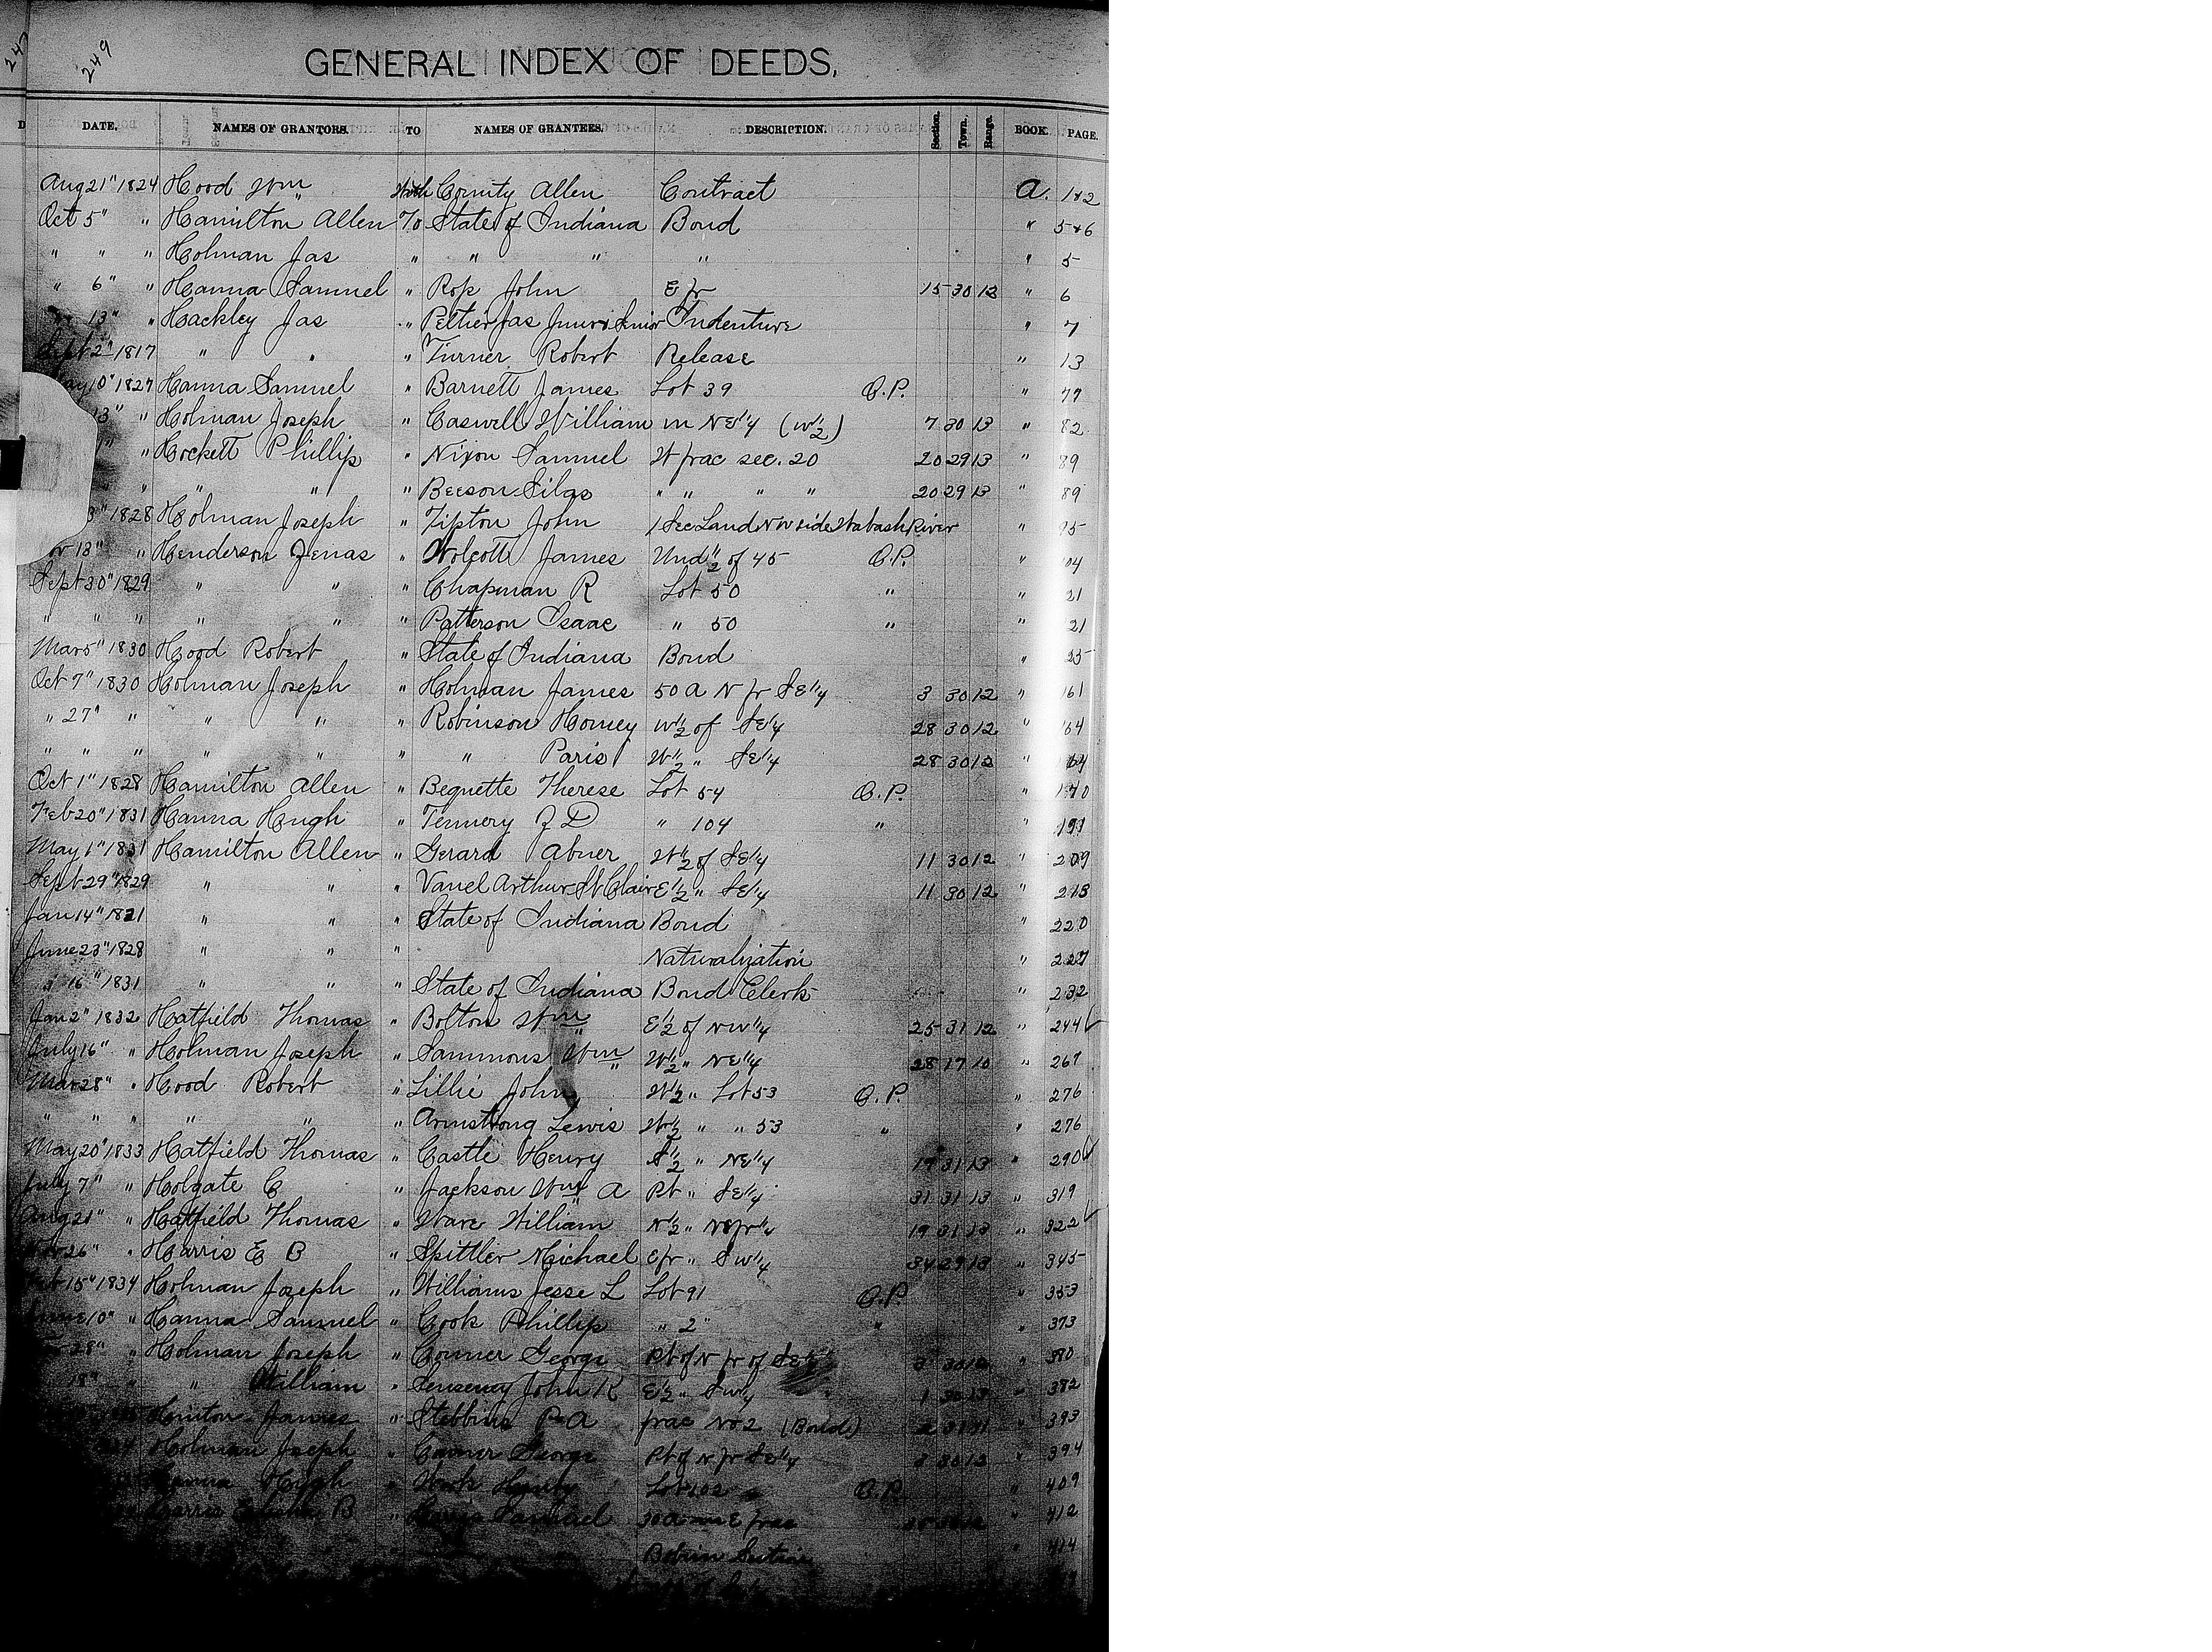 247
249
GENERAL INDEX OF DEEDS.
DATE. NAMES OF GRANTORS. TO NAMES OF GRANTEES. DESCRIPTION. Section. Town. Range. BOOK. PAGE.
Aug 21" 1824 Hood Wm With County Allen Contract A. 1+2
Oct 5" " Hamilton Allen To State of Indiana Bond " 5+6
" " " Holman Jas " " " " " 5
" 6" " Hanna Samuel " Ross John E fr 15 30 12 " 6
13" " Hackley Jas " Peltier Jas Indenture " 7
Sept 2" 1817 " " " Turner Robert Release " 13
May 10" 1827 Hanna Samuel " Barnett James Lot 39 O.P. " 77
13" " Holman Joseph " Caswell William in NE 1/4 (W 1/2) 7 30 13 " 82
" Hockett Phillip " Nixon Samuel W frac sec. 20 20 29 13 " 89
" " " " Beeson Silas " " " " 20 29 13 " 89
1828 Holman Joseph " Tipton John 1 Sec Land NW side Wabash River " 95
18" " Henderson Zenas " Wolcott James Und 1/2 of 45 O.P. " 04
Sept 30" 1829 " " " Chapman R Lot 50 " " 21
" " " " " " Patterson Isaac " 50 " " 21
Mar 5" 1830 Hood Robert " State of Indiana Bond "
Oct 7" 1830 Holman Joseph " Holman James 50 A N fr SE 1/4 3 30 12 " 161
" 27" " " " " Robinson Homey W 1/2 of SE 1/4 28 30 12 " 164
" " " " " " " Paris W 1/2 " SE 1/4 28 30 12 " 164
Oct 1" 1828 Hamilton Allen " Bequette Therese Lot 54 O.P. " 170
Feb 20" 1831 Hanna Hugh " Tennery Z D " 104 " "
May 1" 1831 Hamilton Allen " Gerard Abner W 1/2 of SE 1/4 11 30 12 " 209
Sept 29" 1829 " " " Vanel Arthur St Clair E 1/2 " SE 1/4 11 30 12 " 213
Jan 14" 1821 " " " State of Indiana Bond " 220
June 23" 1828 " " " Naturalization " 227
" 16" 1831 " " " State of Indiana Bond Clerk " 232
Jan 2" 1832 Hatfield Thomas " Bolton Wm E 1/2 of NW 1/4 25 31 12 " 244
July 16" " Holman Joseph " Sammons Wm W 1/2 " NE 1/4 28 17 10 " 267
Mar 28" " Hood Robert " Lillie John W 1/2 " Lot 53 O.P. " 276
" " " " " " Armstrong Lewis W 1/2 " " 53 " " 276
May 20" 1833 Hatfield Thomas " Castle Henry S 1/2 " NE 1/4 19 31 13 " 290
July 7" " Holgate C " Jackson Wm A Pt " SE 1/4 31 31 13 " 319
Aug 21" " Hatfield Thomas " Ware William N 1/2 " NE fr 1/4 19 31 13 " 322
Nov 26" " Harris E B " Spittler Michael E fr " SW 1/4 34 29 13 " 345
Feb 15" 1834 Holman Joseph " Williams Jesse L Lot 91 O.P. " 353
June 10" " Hanna Samuel " Cook Phillip " 2" " " 373
28" " Holman Joseph " Comer George Pt of N fr of SE 1/4 3 30 12 " 380
18" " " William " Senseney John R E 1/2 " SW 1/4 1 30 13 " 382
Hinton James " Stebbins P A frac No 2 (Bond) " 393
Holman Joseph " Comer George Pt of N fr SE 1/4 3 30 12 " 394
Hanna Hugh " Henry Lot 102 O.P. " 409
Harris B " Hanna Samuel 30 A E frac " 412
" 414